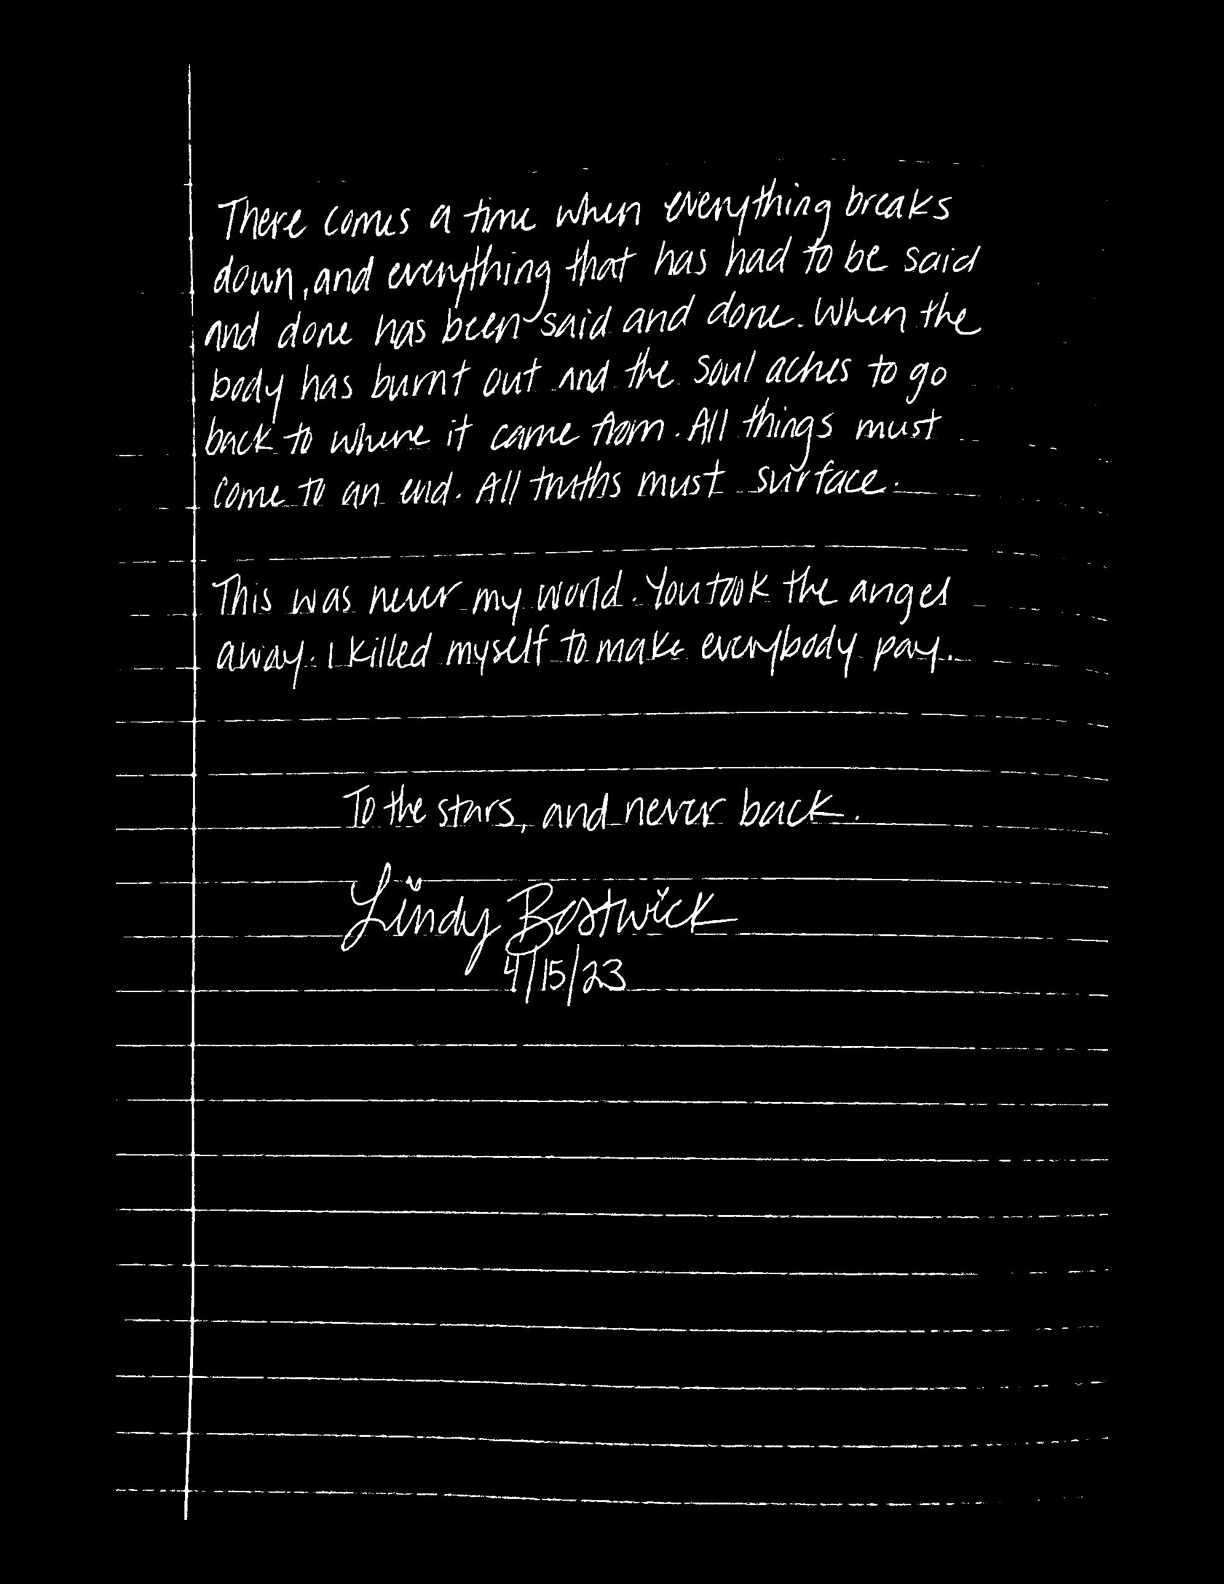 There comes a time when everything breaks
down, and everything that has had to be said
and done has been said and done. When the
body has burnt out and the soul aches to go
back to where it came from. All things must
come to an end. All truths must surface.
This was never my world. You took the angel
away. I killed myself to make everybody pay.
To the stars, and never back.
Lindy Bostwick
4/15/23